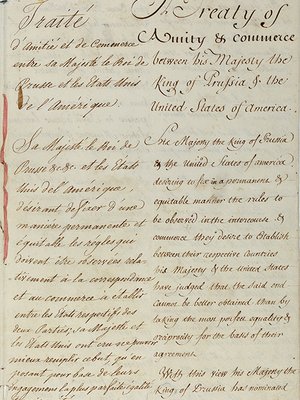 Traité
d'Amitié et de Commerce
entre sa Majesté le Roi de
Prusse et les Etats Unis
de l'Amérique.
Sa Majesté le Roi de
Prusse &c. &c. et les Etats
Unis de l'Amérique,
désirant de fixer d'une
manière permanente et
équitable, les règles qui
doivent être observées relati-
vement à la correspondance
et au commerce à établir
entre les Etats respectifs des
deux Parties, sa Majesté et
les Etats Unis ont cru ne pouvoir
mieux remplir ce but, qu'en
posant pour base de leurs
engagemens la plus parfaite égalité
A Treaty of
Amity & Commerce
between his Majesty the
King of Prussia & the
United States of America.
His Majesty the King of Prussia
& the United States of America
desiring to fix in a permanent &
equitable manner the rules to
be observed in the intercourse &
commerce they desire to Establish
between their respective Countries
his Majesty & the United States
have judged that the said end
cannot be better obtained than by
taking the most perfect equality &
reciprocity for the basis of their
agreement.
With this view his Majesty the
King of Prussia has nominated